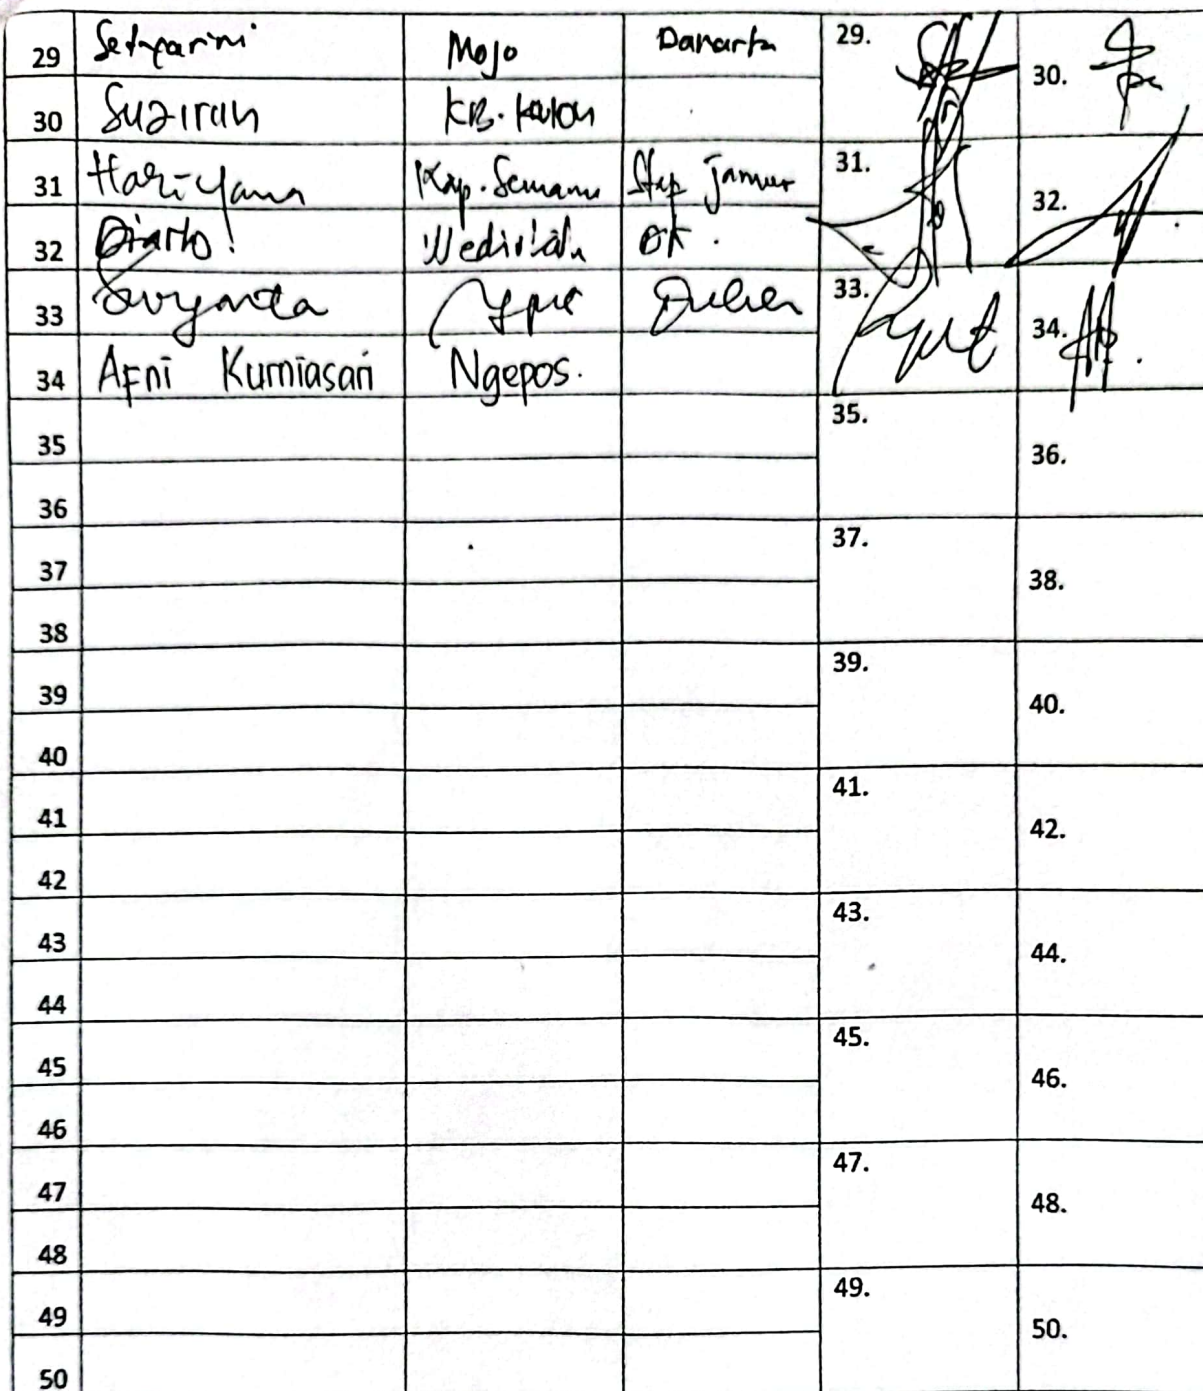 29 Setyarini Mojo Danarta 29. 30.
30 Sugiran KB. Kulon
31 Hariyana Kap. Semanu Step Jamur 31. 32.
32 Diarto! Wediutah OK.
33 33. 34.
34 Afni Kurniasari Ngepos.
35 35. 36.
36
37 37. 38.
38
39 39. 40.
40
41 41. 42.
42
43 43. 44.
44
45 45. 46.
46
47 47. 48.
48
49 49. 50.
50